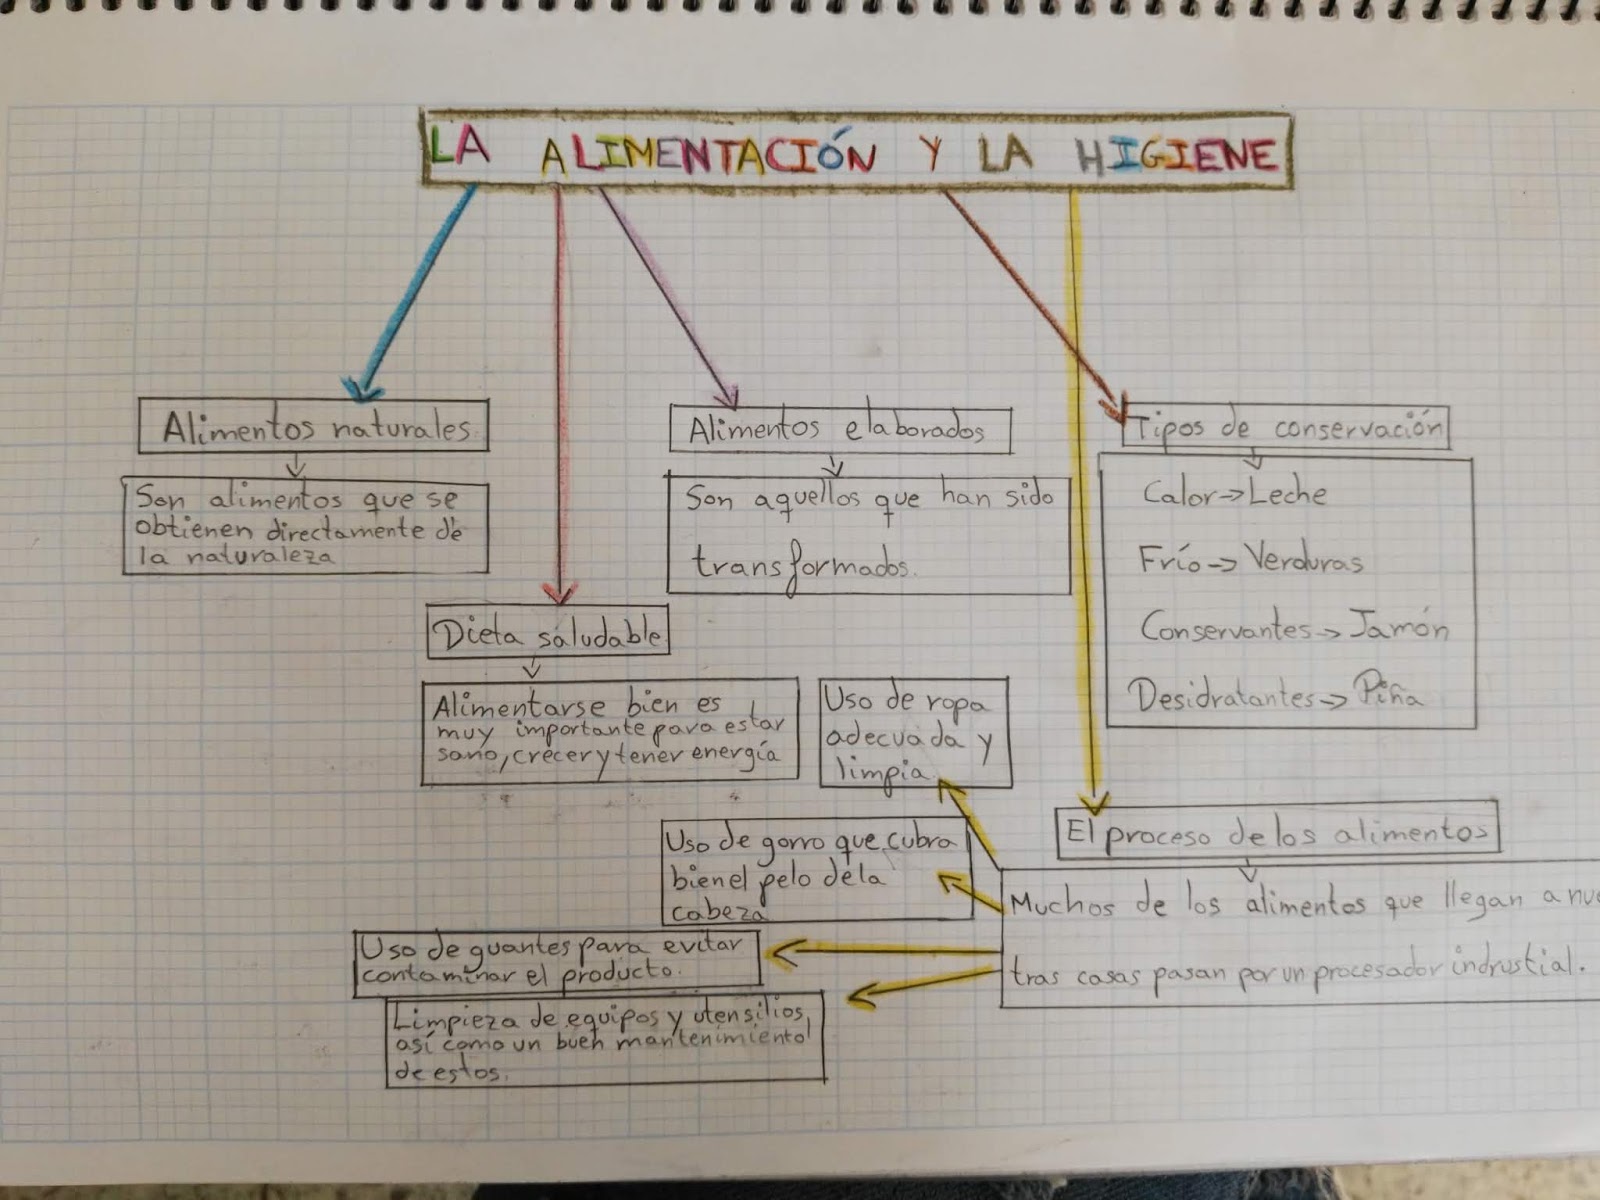 LA ALIMENTACIÓN Y LA HIGIENE
Alimentos naturales
Son alimentos que se
obtienen directamente de
la naturaleza
Dieta saludable
Alimentarse bien es
muy importante para estar
sano, crecer y tener energía
Alimentos elaborados
Son aquellos que han sido
transformados.
Tipos de conservación
Calor->Leche
Frío->Verduras
Conservantes->Jamón
Desidratantes->Piña
El proceso de los alimentos
Muchos de los alimentos que llegan a nue
tras casas pasan por un procesador indrustial.
Uso de ropa
adecuada y
limpia
Uso de gorro que cubra
bien el pelo de la
cabeza
Uso de guantes para evitar
contaminar el producto.
Limpieza de equipos y utensilios,
así como un buen mantenimiento
de estos.